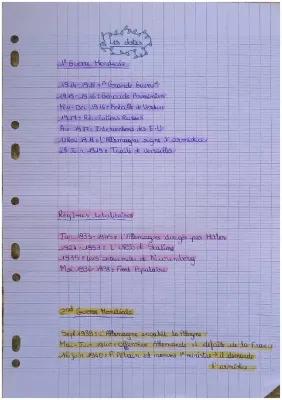 Les dates
1e Guerre Mondiale
1914-1918 : "Grande Guerre"
1915-1916 : Génocide Arménien
Fév-Déc 1916 : Bataille de Verdun
1917 : Révolutions Russes
Avr 1917 : Interventions des E-U
11 Nov 1918 : l'Allemagne signe l'armistice
28 Juin 1919 : Traité de Versailles
Régimes totalitaires
Jan 1933-1945 : L'Allemagne dirigée par Hitler
1924-1953 : L'URSS de Staline
1935 : Lois antisémites de Nuremberg
Mai 1936-1938 : Front Populaire
2nd Guerre Mondiale
Sept 1939 : L'Allemagne envahit la Pologne
Mai-Juin 1940 : Offensive Allemande et défaite de la France
16 juin 1940 : P. Pétain est nommé 1er ministre il demande
l'armistice